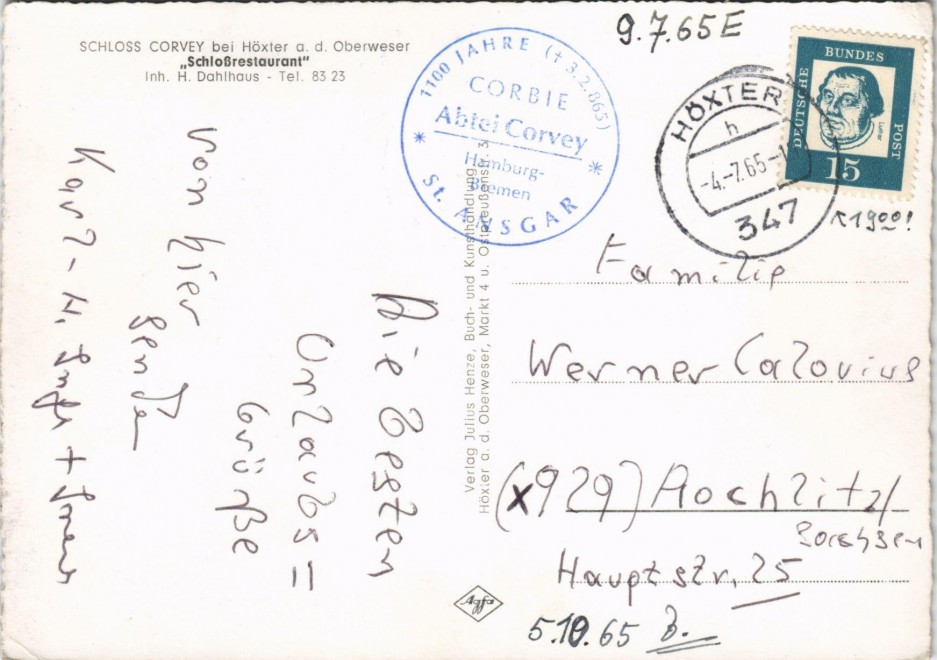 SCHLOSS CORVEY bei Höxter a. d. Oberweser
„Schloßrestaurant"
Inh. H. Dahlhaus - Tel. 83 23
1100 JAHRE († 3.2.865)
CORBIE
Abtei Corvey
Hamburg-
Bremen
St. ANSGAR
9.7.65 E
HÖXTER
h
-4.-7.65-1
347
DEUTSCHE BUNDES POST
Luther
15
1900!
Die besten
Urlaubs=
Grüße
von hier
senden
Karl-H.
Verlag Julius Henze, Buch- und Kunsthandlung
Höxter a. d. Oberweser, Markt 4 u. Ostpreußenstr. 3
Familie
Werner Calovius
(x929) Rochlitz/
Sachsen
Hauptstr. 25
5.10.65 B.
Agfa